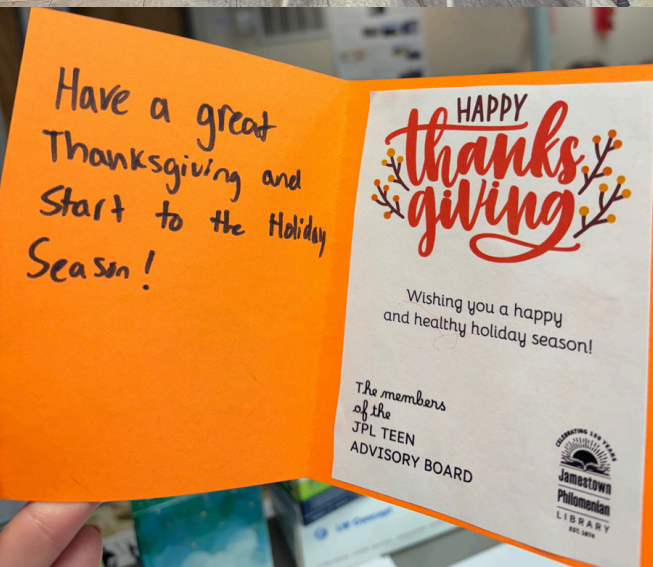 Have a great
Thanksgiving and
Start to the Holiday
Season!
HAPPY
thanks
giving
Wishing you a happy
and healthy holiday season!
The members
of the
JPL TEEN
ADVISORY BOARD
CELEBRATING 150 YEARS
Jamestown
Philomenian
LIBRARY
EST. 1874